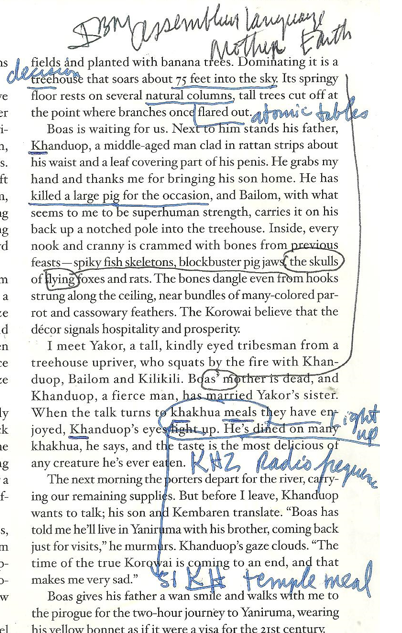 IBM assembler language
Mother Earth
fields and planted with banana trees. Dominating it is a
decision
treehouse that soars about 75 feet into the sky. Its springy
floor rests on several natural columns, tall trees cut off at
the point where branches once flared out.
atomic tables
Boas is waiting for us. Next to him stands his father,
Khanduop, a middle-aged man clad in rattan strips about
his waist and a leaf covering part of his penis. He grabs my
hand and thanks me for bringing his son home. He has
killed a large pig for the occasion, and Bailom, with what
seems to me to be superhuman strength, carries it on his
back up a notched pole into the treehouse. Inside, every
nook and cranny is crammed with bones from previous
feasts—spiky fish skeletons, blockbuster pig jaws, the skulls
of flying foxes and rats. The bones dangle even from hooks
strung along the ceiling, near bundles of many-colored par-
rot and cassowary feathers. The Korowai believe that the
décor signals hospitality and prosperity.
I meet Yakor, a tall, kindly eyed tribesman from a
treehouse upriver, who squats by the fire with Khan-
duop, Bailom and Kilikili. Boas' mother is dead, and
Khanduop, a fierce man, has married Yakor's sister.
When the talk turns to khakhua meals they have en-
joyed, Khanduop's eyes light up. He's dined on many
light
up
khakhua, he says, and the taste is the most delicious of
any creature he's ever eaten.
KHZ Radio
The next morning the porters depart for the river, carry-
ing our remaining supplies. But before I leave, Khanduop
wants to talk; his son and Kembaren translate. “Boas has
told me he'll live in Yaniruma with his brother, coming back
just for visits,” he murmurs. Khanduop's gaze clouds. “The
time of the true Korowai is coming to an end, and that
makes me very sad.”
KH temple meal
Boas gives his father a wan smile and walks with me to
the pirogue for the two-hour journey to Yaniruma, wearing
his yellow bonnet as if it were a visa for the 21st century.